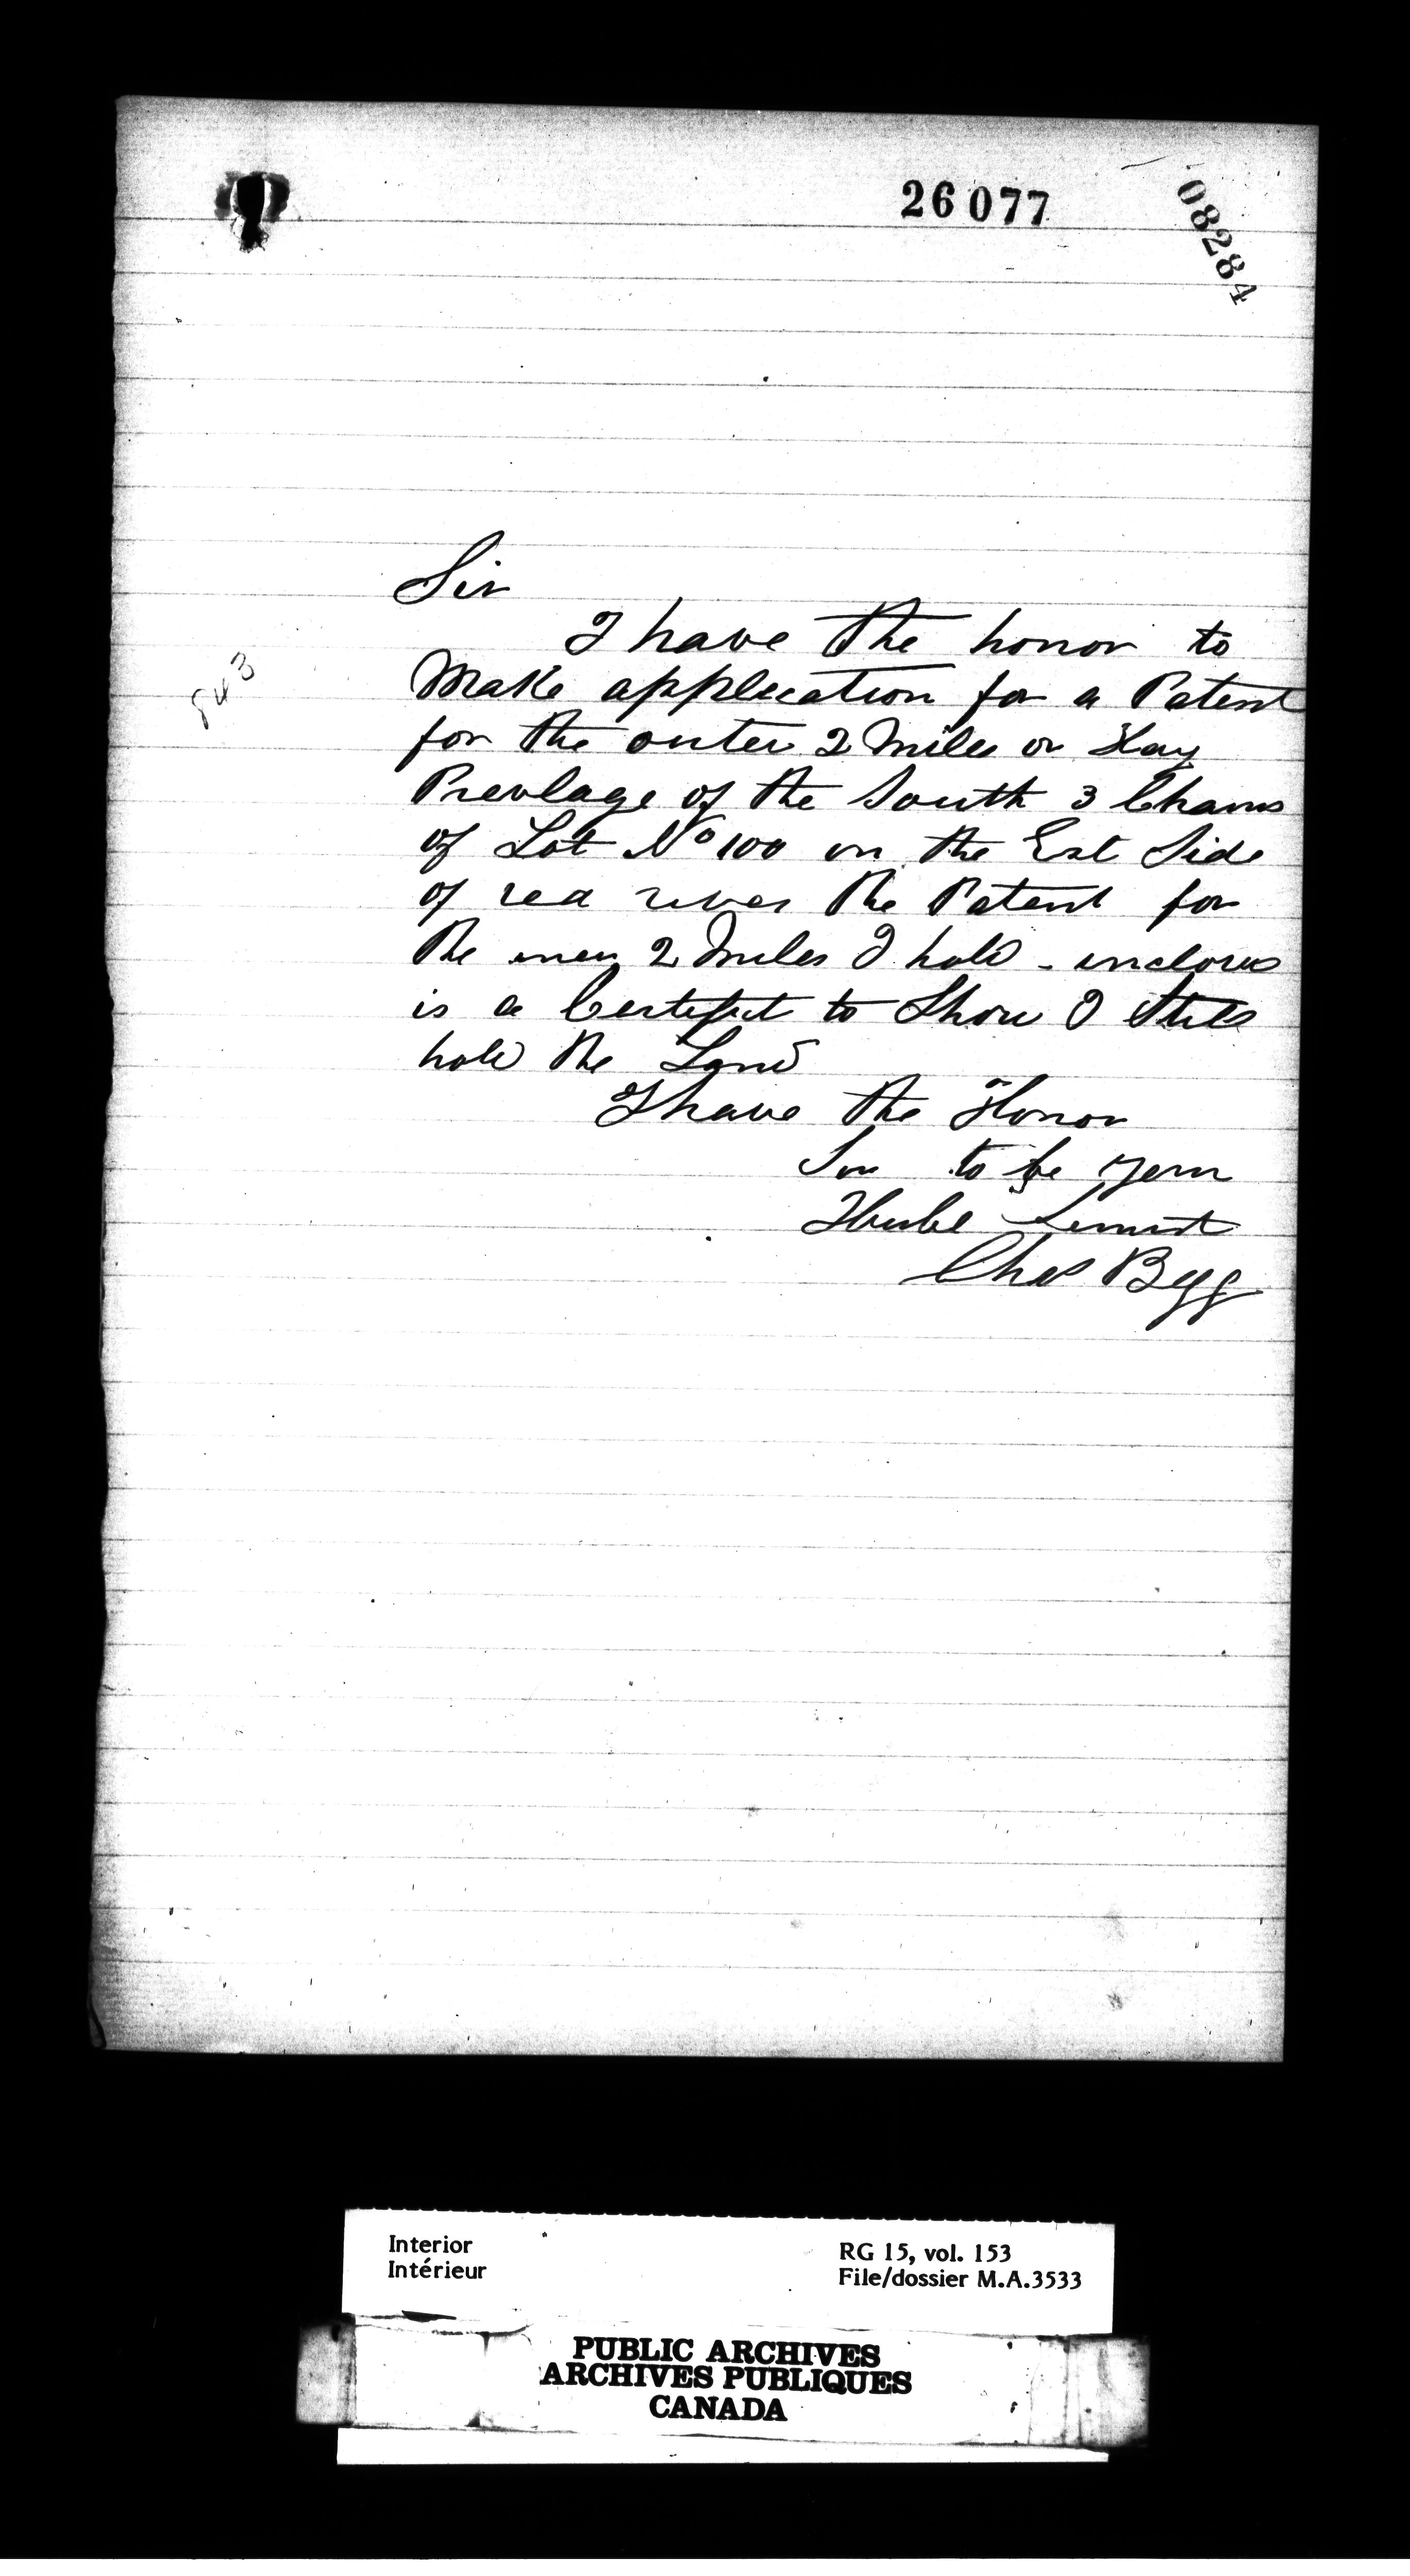 26077
08284
Sir
I have the honor to
Make application for a Patent
for the outer 2 Miles or Hay
Prevlage of the South 3 Chains
of Lot No 100 on the Est Side
of red river the Patent for
the iner 2 Miles I hold - inclosed
is a Certefict to Show I Still
hold the Land
I have the Honor
Sir to be your
Humbl Servant
Chas Begg
843
Interior
Intérieur
RG 15, vol. 153
File/dossier M.A.3533
PUBLIC ARCHIVES
ARCHIVES PUBLIQUES
CANADA